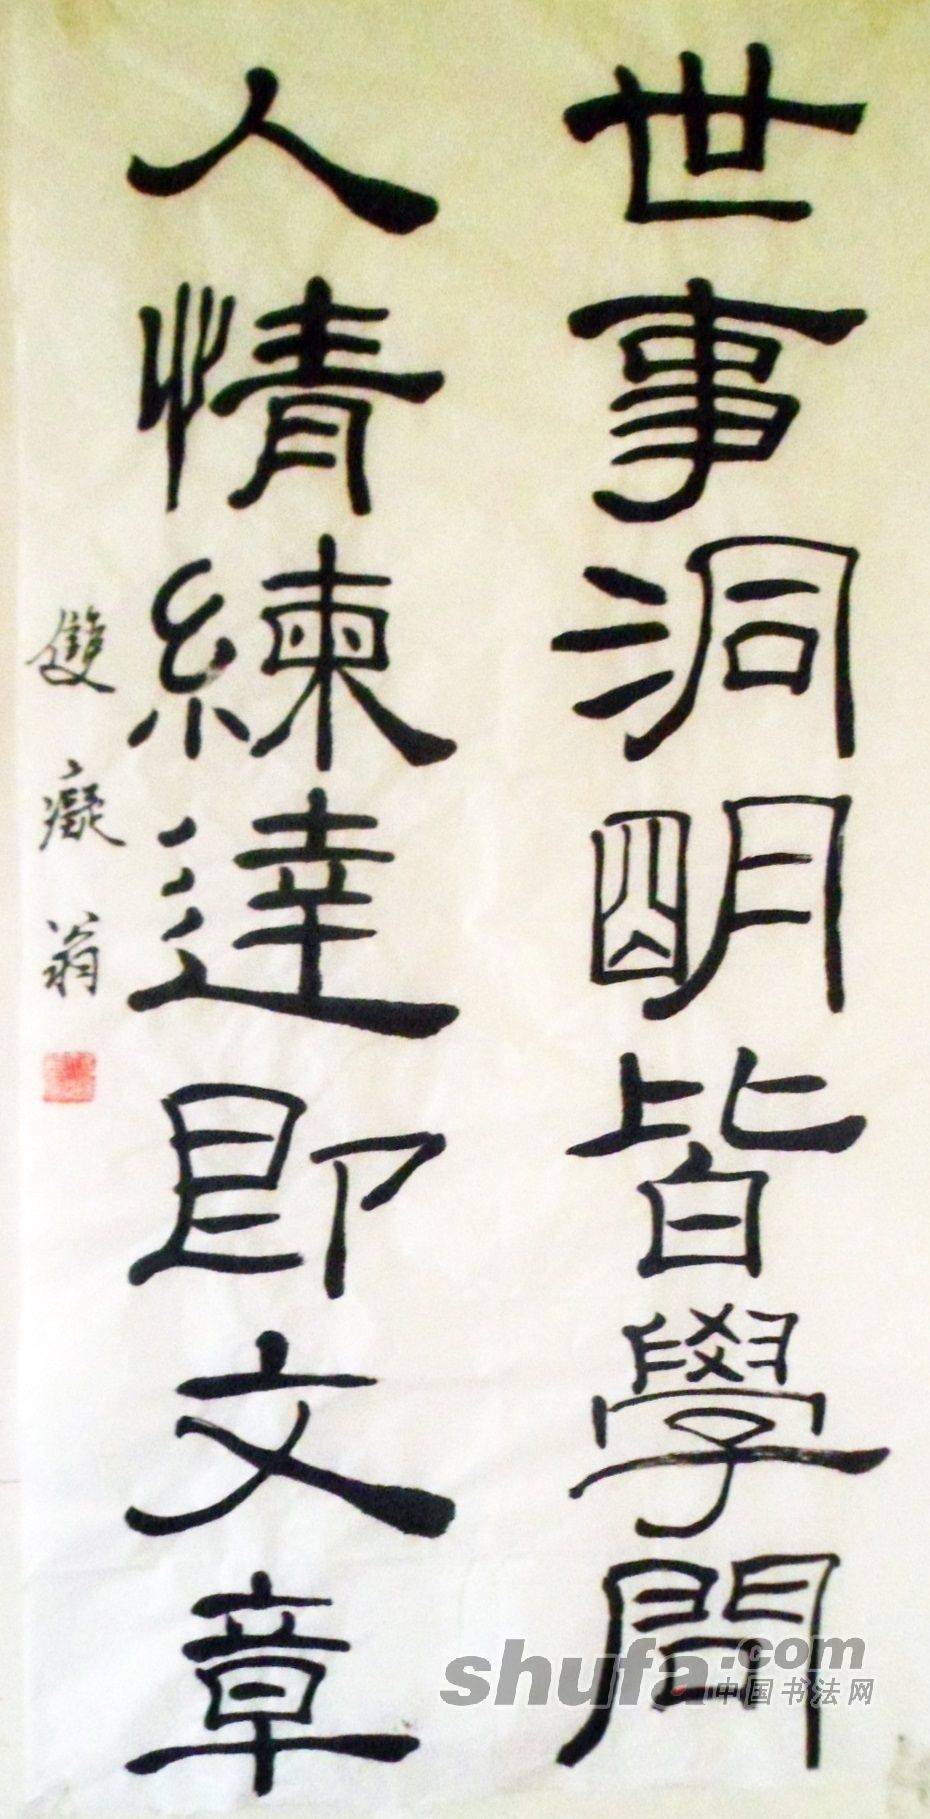 世事洞明皆學問
人情練達即文章
雙癡翁
shufa.com
中国书法网